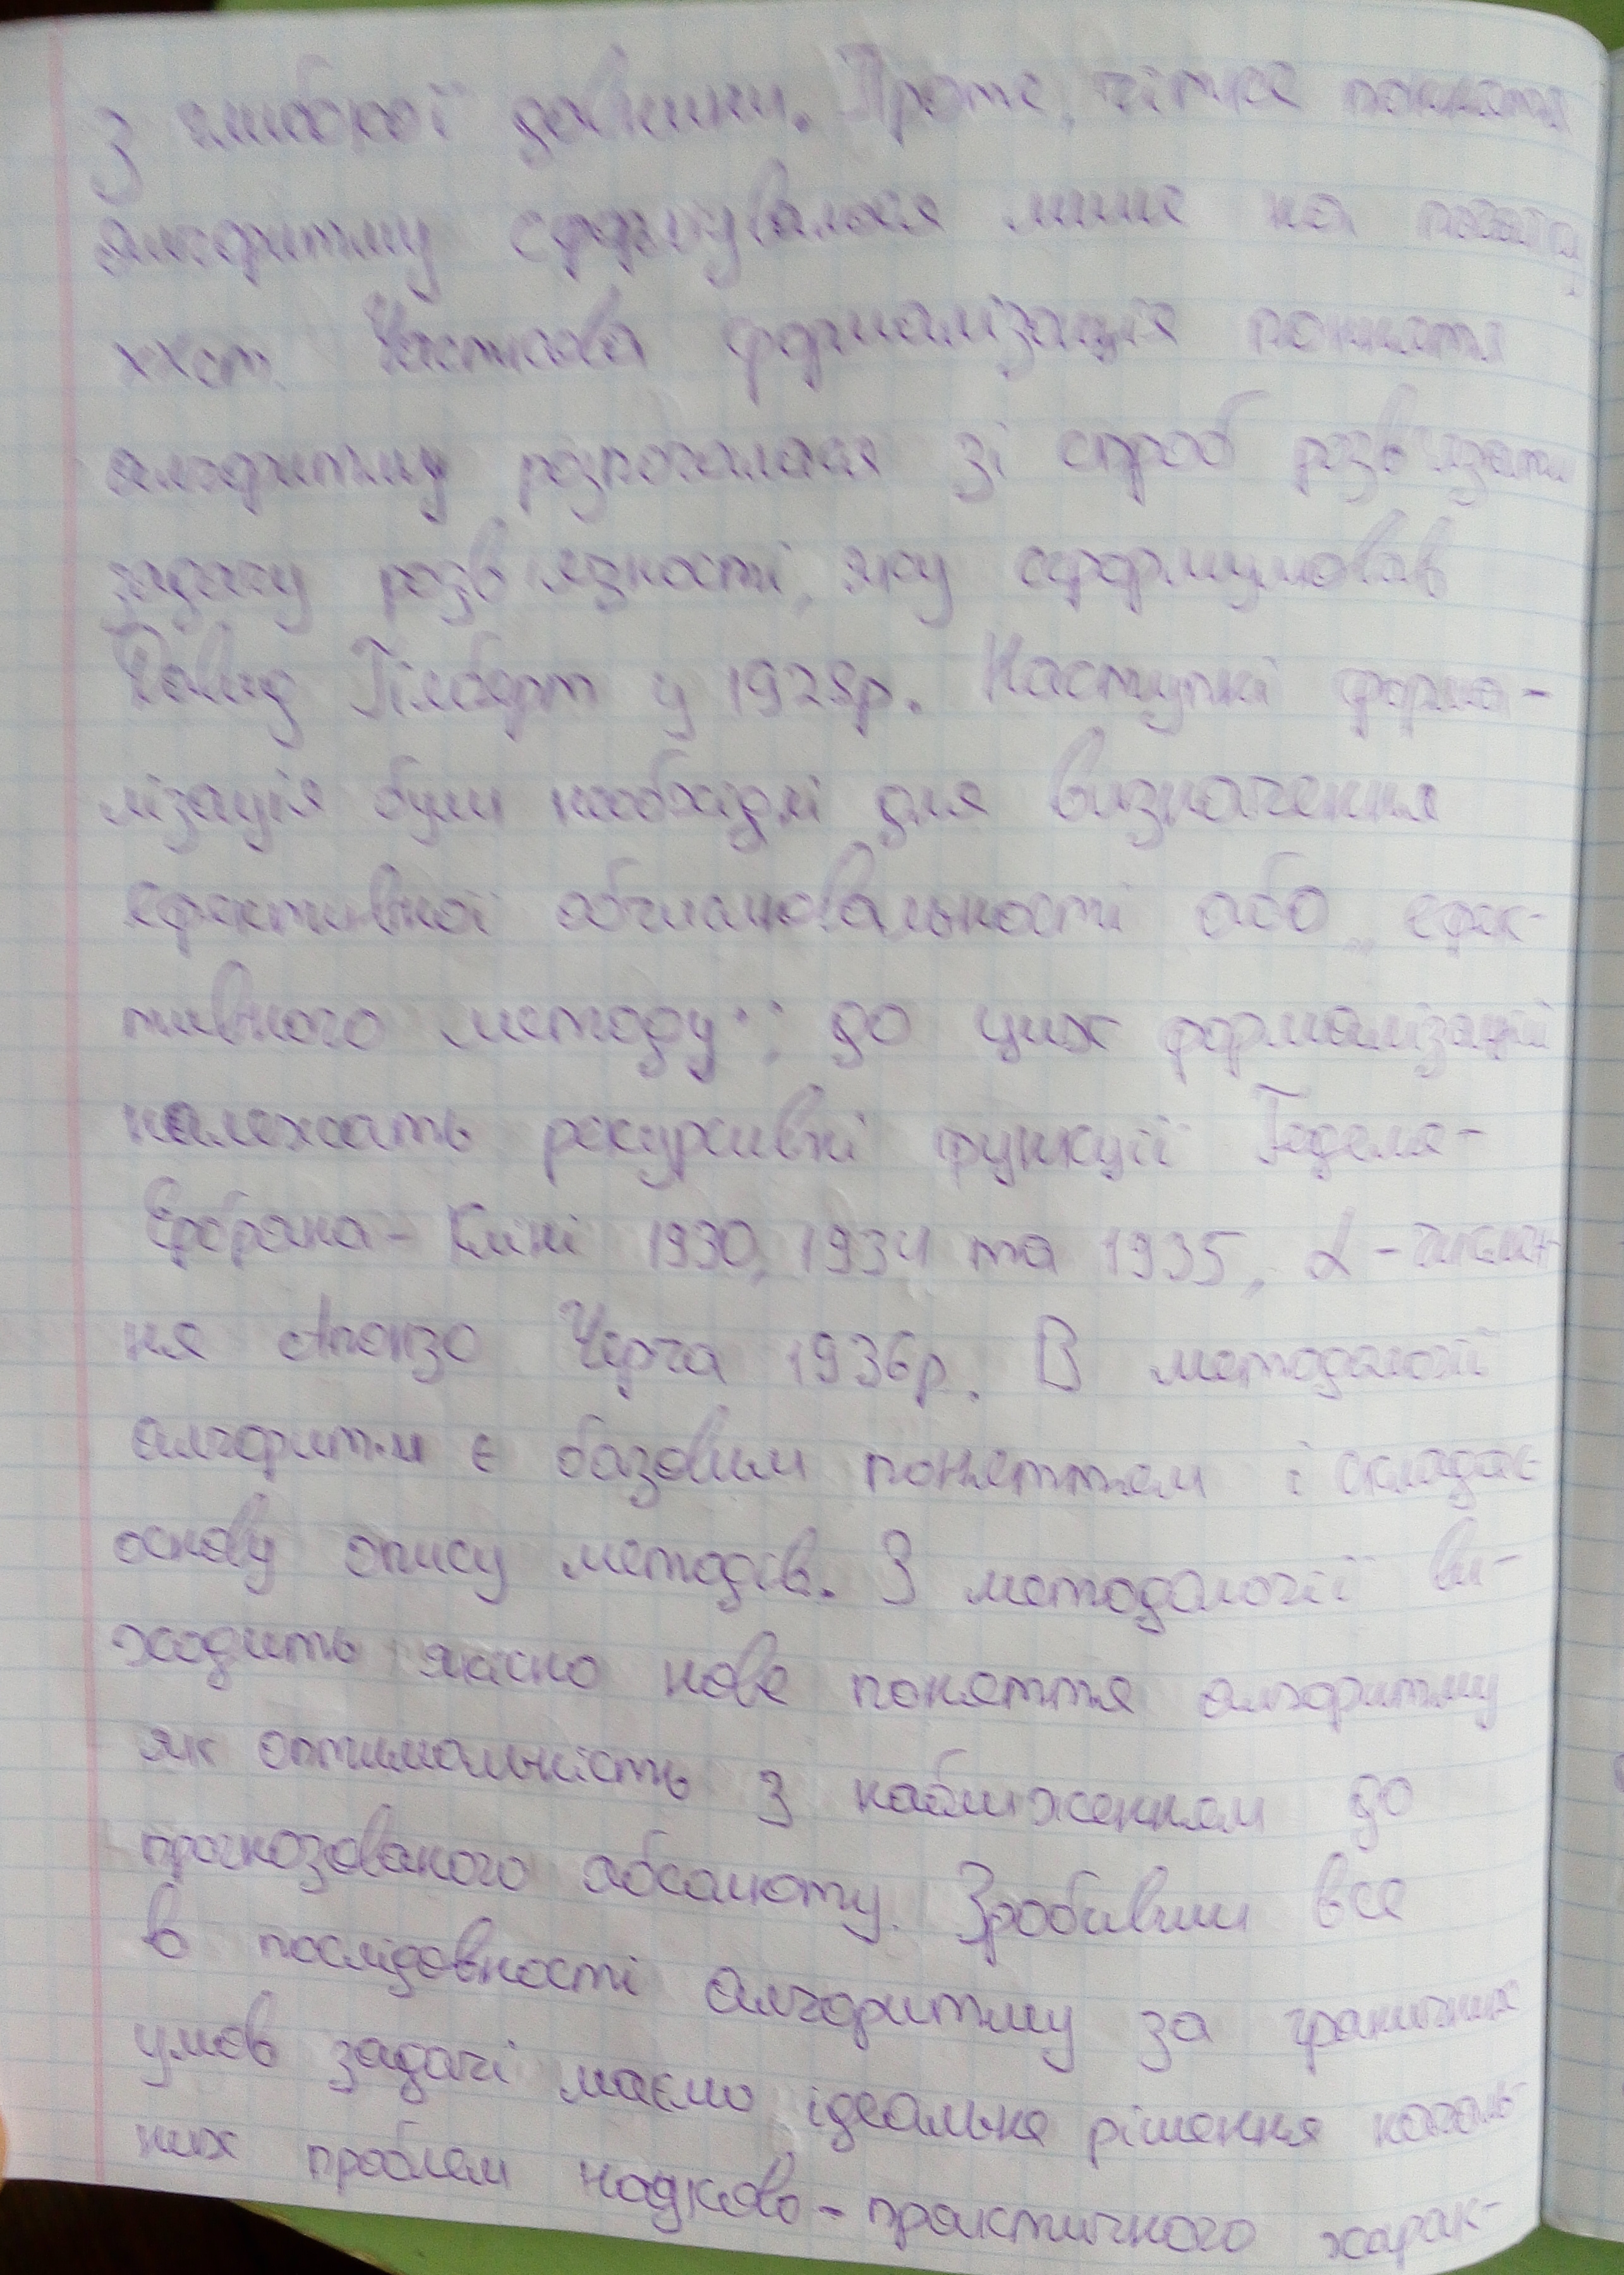 з глибокої давнини. Проте, чітке поняття
алгоритму сформувалося лише на початку
ХХст. Часткова формалізація поняття
алгоритму розпочалася зі спроб розв'язати
задачу розв'язності, яку сформулював
Давид Гільберт у 1928р. Наступні форма-
лізація були необхідні для визначення
ефективної обчислювальності або "ефек-
тивного методу"; до цих формалізацій
належать рекурсивні функції Геделя-
Ербрана-Кліні 1930, 1934 та 1935, λ-числен-
ня Алонзо Черча 1936р. В методології
алгоритм є базовим поняттям і складає
основу опису методів. З методології ви-
ходить якісно нове поняття алгоритму
як оптимальність з наближенням до
прогнозованого абсолюту. Зробивши все
в послідовності алгоритму за граничних
умов задачі маємо ідеальне рішення нагаль-
них проблем науково-практичного харак-